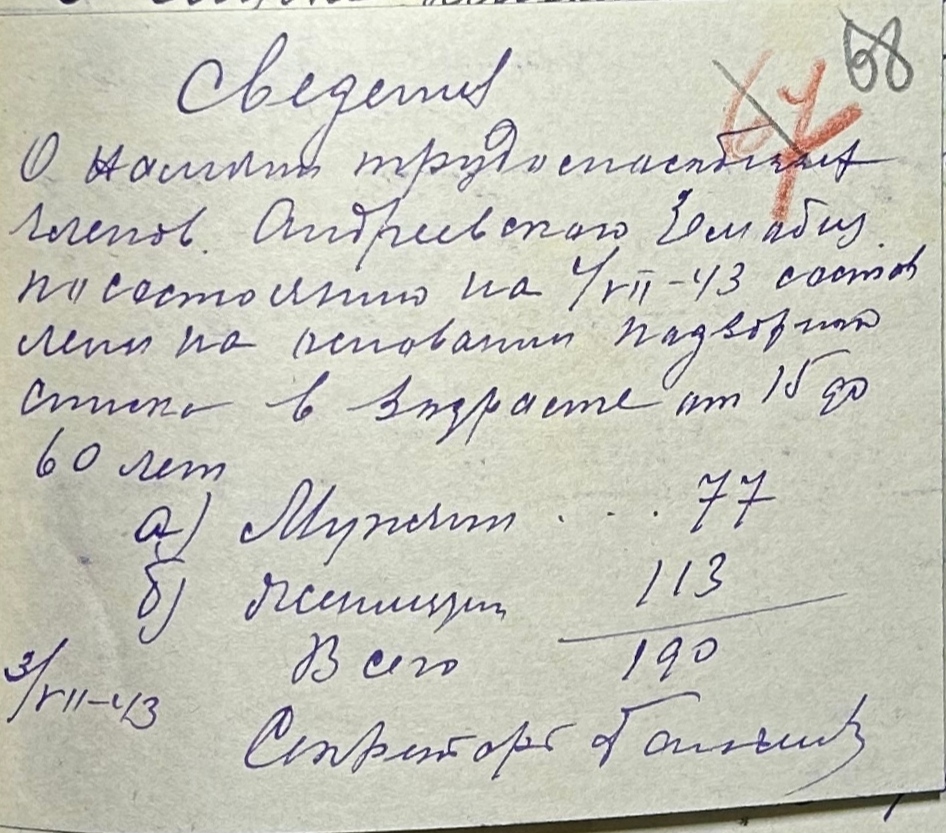 68
67
Сведения
О наличии трудоспособных
членов Андреевского Земобщ.
по состоянию на 1/VII-43 состав
лены на основании подворного
списка в возрасте от 15 до
60 лет
а) Мужчин . . . . 77
б) Женщин 113
Всего 190
3/VII-43
Секретарь